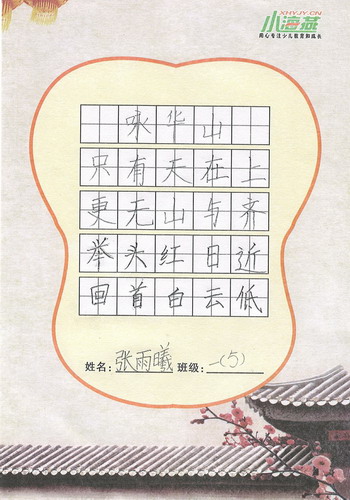 XHYJY.CN
小海燕
用心专注少儿教育和成长
咏华山
只有天在上
更无山与齐
举头红日近
回首白云低
姓名：张雨曦 班级：一(5)